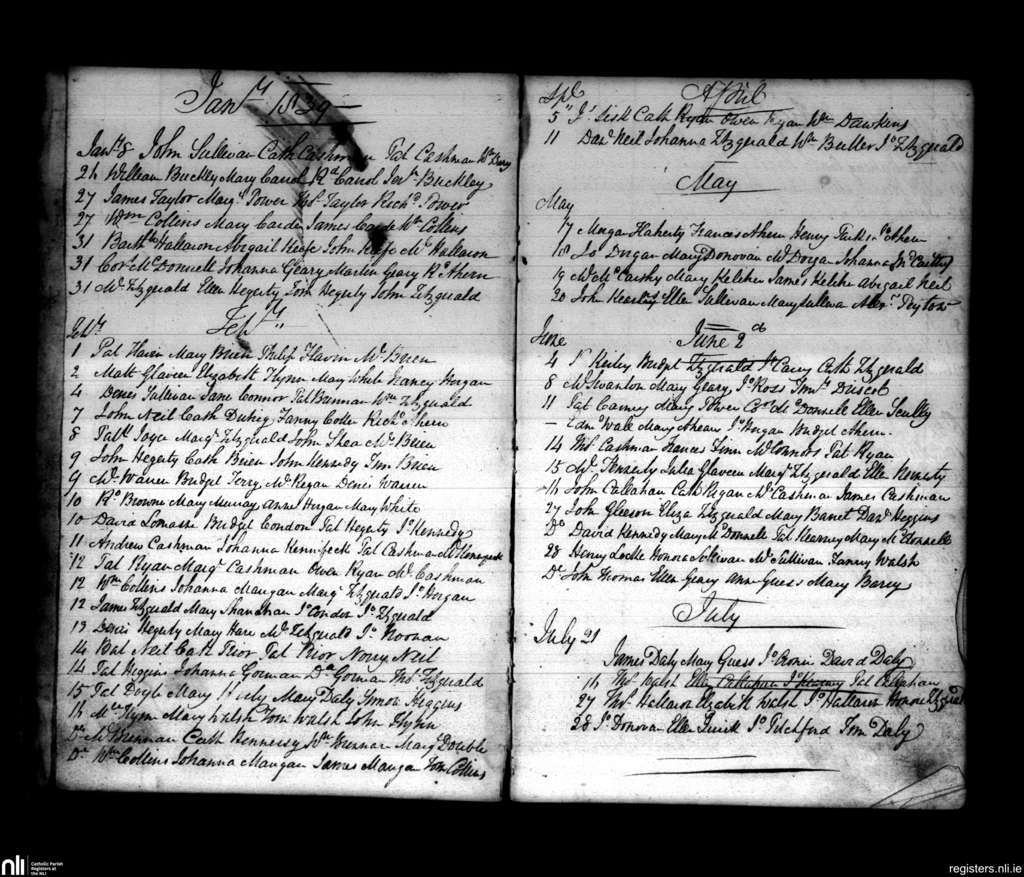 Jan.ry 1839
Jan.ry 8 John Sullivan Cath Cashman Pat Cashman Wm Barry
26 William Buckley Mary Carrol Rd Carrol Jerh Buckley
27 James Taylor Marg. Power Thos Taylor Richd Power
27 Wm Collins Mary Carde James Carde Wm Collins
31 Bartw Hallaron Abigail Keefe John Keefe Ml Hallaron
31 Cors McDonnell Johanna Geary Martin Geary Rd Ahern
31 Ml Fitzgerald Ellen Hegerty Tom Hegerty John Fitzgerald
Feb ry "
Feb.ry
1 Pat Flavin Mary Brien Philip Flavin Ml Brien
2 Matt Glaveen Elizabeth Flynn Mary White Nancy Horgan
4 Denis Sullivan Jane Connor Pat Brennan Wm Fitzgerald
7 John Neil Cath Duhig Fanny Cotter Richd Ahern
8 Patk Joyce Marg. Fitzgerald John Shea Ml Brien
9 John Hegerty Cath Brien John Kennedy Tim Brien
9 Ml Warren Bridget Terry Ml Regan Denis Warren
10 Rd Browne Mary Murray Anne Horgan Mary White
10 David Lomasne Bridget Condon Pat Hegerty Jo Kennedy
11 Andrew Cashman Johanna Kennifeck Pat Cashman Ml Kennifeck
12 Pat Ryan Marg. Cashman Owen Ryan Ml Cashman
12 Wm Collins Johanna Mangan Marg. Fitzgerald Jo Horgan
12 James Fitzgerald Mary Shanahan Jo Condon Jo Fitzgerald
13 Denis Hegerty Mary Hare Ml Fitzgerald Jo Noonan
14 Bat Neil Cath Prior Pat Prior Norry Neil
14 Pat Higgins Johanna Gorman Dd Gorman Thos Fitzgerald
15 Pat Doyle Mary Mary Daly Simon Higgins
16 Flynn Mary Walsh Tom Walsh John Flynn
Do Ml Brennan Cath Hennessy Wm Brennan Marg. Double
Do Wm Collins Johanna Mangan James Mangan Tom Collins
Apl April
5 Js Sisk Cath Ryan Owen Ryan Wm Dawkins
11 Davd Neil Johanna Fitzgerald Wm Butler Jo Fitzgerald
May
May
17 Morgan Flaherty Frances Ahern Henry Ahern
18 Jo Dorgan Mary Donovan Ml Dorgan Johanna McCarthy
19 Ml McCarthy Mary Keleher James Keleher Abigail Neil
20 John Ellen Sullivan Mary Sullivan Alexr Peyton
June June 2d
4 Keiley Bridget Fitzgerald Carey Cath Fitzgerald
8 Ml Swanton Mary Geary Jo Ross Briscoe
11 Pat Carney Mary Power Cors McDonnell Ellen Scully
– Edm Wall Mary Ahearn Jo Horgan Bridget Ahern.
14 Ml Cashman Frances Finn Ml Connors Pat Ryan
15 Ml Kennedy Julia Glaveen Marg. Fitzgerald Ellen
16 John Callahan Cath Regan Ml Cashman James Cashman
27 John Gleeson Eliza Fitzgerald Mary Barret Davd Higgins
Do David Kennedy Mary McDonnell Pat Kearney Mary McDonnell
28 Henry Locke Honora Sullivan Ml Sullivan Fanny Walsh
Do John Thomas Ellen Geary Ann Guess Mary Barry
July
July 21
James Daly Mary Guess Jo Cronin David Daly
16 Thos Walsh Ellen Callahan Jo Kearney Pat Callahan
27 Thos Hallaron Elizabeth Walsh Jo Hallaron Honora Fitzgerald
28 Jo Donovan Ellen Quirk Jo Pitchford Tim Daly
nli Catholic Parish
Registers at
the NLI
registers.nli.ie